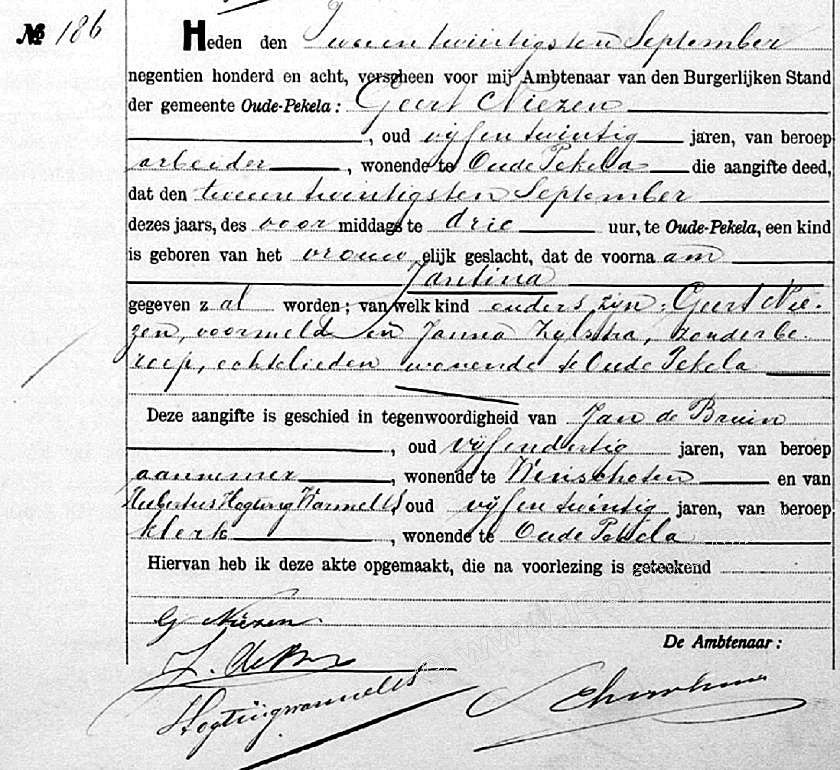 № 186
Heden den Tweeentwintigsten September
negentien honderd en acht, verscheen voor mij Ambtenaar van den Burgerlijken Stand
der gemeente Oude-Pekela: Geert Niezen
, oud vijfentwintig jaren, van beroep
arbeider, wonende te Oude Pekela die aangifte deed,
dat den tweeentwintigsten September
dezes jaars, des voor middags te drie uur, te Oude-Pekela, een kind
is geboren van het vrouw elijk geslacht, dat de voorna am
Jantina
gegeven z al worden; van welk kind ouders zijn: Geert Nie-
zen, voormeld en Janna Zylstra, zonder be-
roep, echtelieden wonende te Oude Pekela
Deze aangifte is geschied in tegenwoordigheid van Jan de Bruin
, oud vijfendertig jaren, van beroep
aannemer, wonende te Winschoten en van
Hubertus Hogting Warmelts, oud vijfentwintig jaren, van beroep
klerk, wonende te Oude Pekela
Hiervan heb ik deze akte opgemaakt, die na voorlezing is geteekend
G Niezen.
De Ambtenaar:
J. de
Hogtingwarmelts